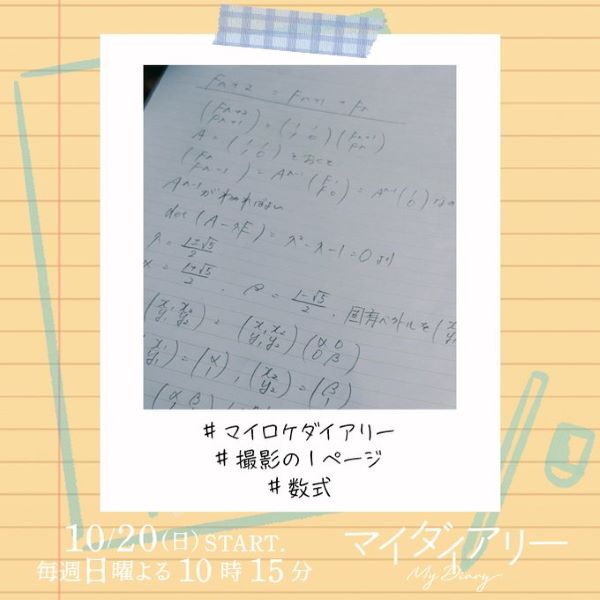 Fn+2 = Fn+1 + Fn
(Fn+2 Fn+1) = (1 1 1 0) (Fn+1 Fn)
A = (1 1 1 0) とおくと
(Fn Fn-1) = Aⁿ⁻¹ (F1 F0) = Aⁿ⁻¹ (1 0) なの
Aⁿ⁻¹がわかればよい
det (A-λE) = λ²-λ-1=0 より
λ = 1±√5/2
α = 1+√5/2, β = 1-√5/2, 固有ベクトルを (x
(x1 x2 y1 y2) = (x1 x2 y1 y2) (α 0 0 β)
(x1 y1) = (α 1), (x2 y2) = (β 1)
(α β
#マイロケダイアリー
#撮影の1ページ
#数式
10/20(日)START.
毎週日曜よる10時15分
マイダイアリー
My Diary